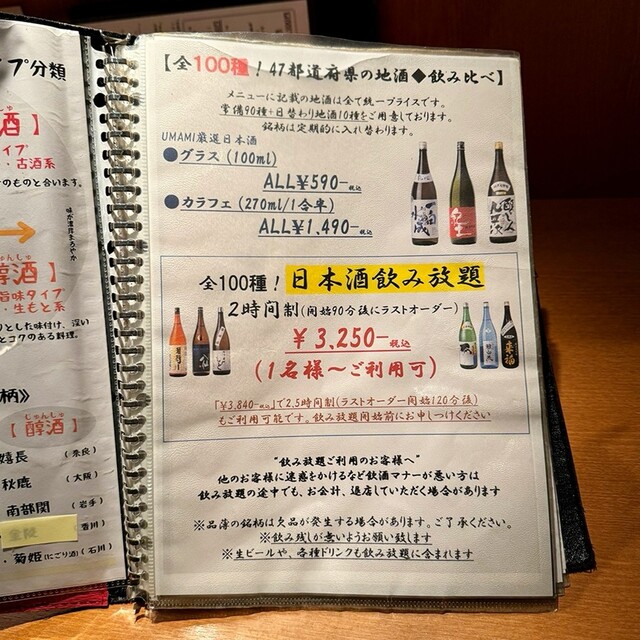 プ分類
しゅ
酒】
イプ
・古酒系
のものと合います。
味が濃厚まろやか
→
じゅんしゅ
醇酒】
旨味タイプ
・生もと系
りとした味付け、深い
とコクのある料理。
柄》
じゅんしゅ
【醇酒】
嬉長 (奈良)
秋鹿 (大阪)
南部関 (岩手)
香川)
・菊姫(にごり酒)(石川)
【全100種！47都道府県の地酒◆飲み比べ】
メニューに記載の地酒は全て統一プライスです。
常備90種+日替わり地酒10種をご用意しております。
銘柄は定期的に入れ替わります。
UMAMI厳選日本酒
●グラス(100ml)
ALL¥590-税込
●カラフェ(270ml/1合半)
ALL¥1,490-税込
全100種！日本酒飲み放題
2時間制(開始90分後にラストオーダー)
¥3,250-税込
(1名様～ご利用可)
「¥3,840-税込」で2.5時間制(ラストオーダー開始120分後)
もご利用可能です。飲み放題開始前にお申しつけください
"飲み放題ご利用のお客様へ"
他のお客様に迷惑をかけるなど飲酒マナーが悪い方は
飲み放題の途中でも、お会計、退店していただく場合があります
※品薄の銘柄は欠品が発生する場合があります。ご了承ください。
※飲み残しが無いようお願い致します
※生ビールや、各種ドリンクも飲み放題に含まれます